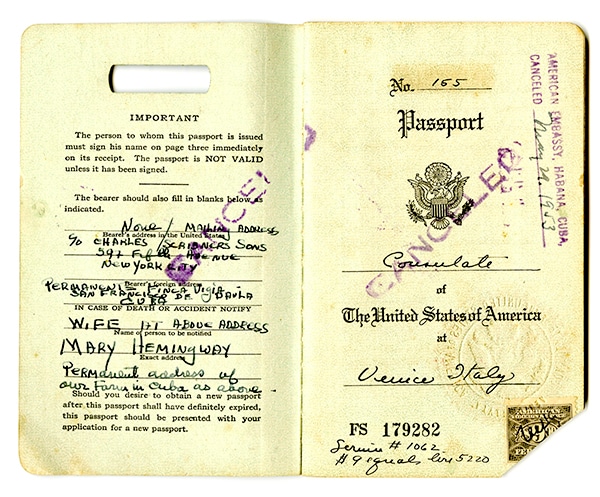 IMPORTANT
The person to whom this passport is issued
must sign his name on page three immediately
on its receipt. The passport is NOT VALID
unless it has been signed.
The bearer should also fill in blanks below as
indicated.
None / MAILING ADDRESS
Bearer's address in the United States
c/o CHARLES / SCRIBNERS SONS
597 Fifth AVENUE
NEW YORK CITY
Bearer's foreign address
PERMANENTE FINCA Vigia
SAN FRANCISCO DE PAULA
CUBA
IN CASE OF DEATH OR ACCIDENT NOTIFY
WIFE AT ABOVE ADDRESS
Name of person to be notified
MARY HEMINGWAY
Exact address
PERMANENT address of
our Farm in Cuba as above
Should you desire to obtain a new passport
after this passport shall have definitely expired,
this passport should be presented with your
application for a new passport.
CANCELED
No. 165
Passport
AMERICAN EMBASSY, HABANA, CUBA,
CANCELED May 26, 1953
CANCELED
Consulate
of
The United States of America
at
Venice Italy
FS 179282
Service # 1062
AMERICAN